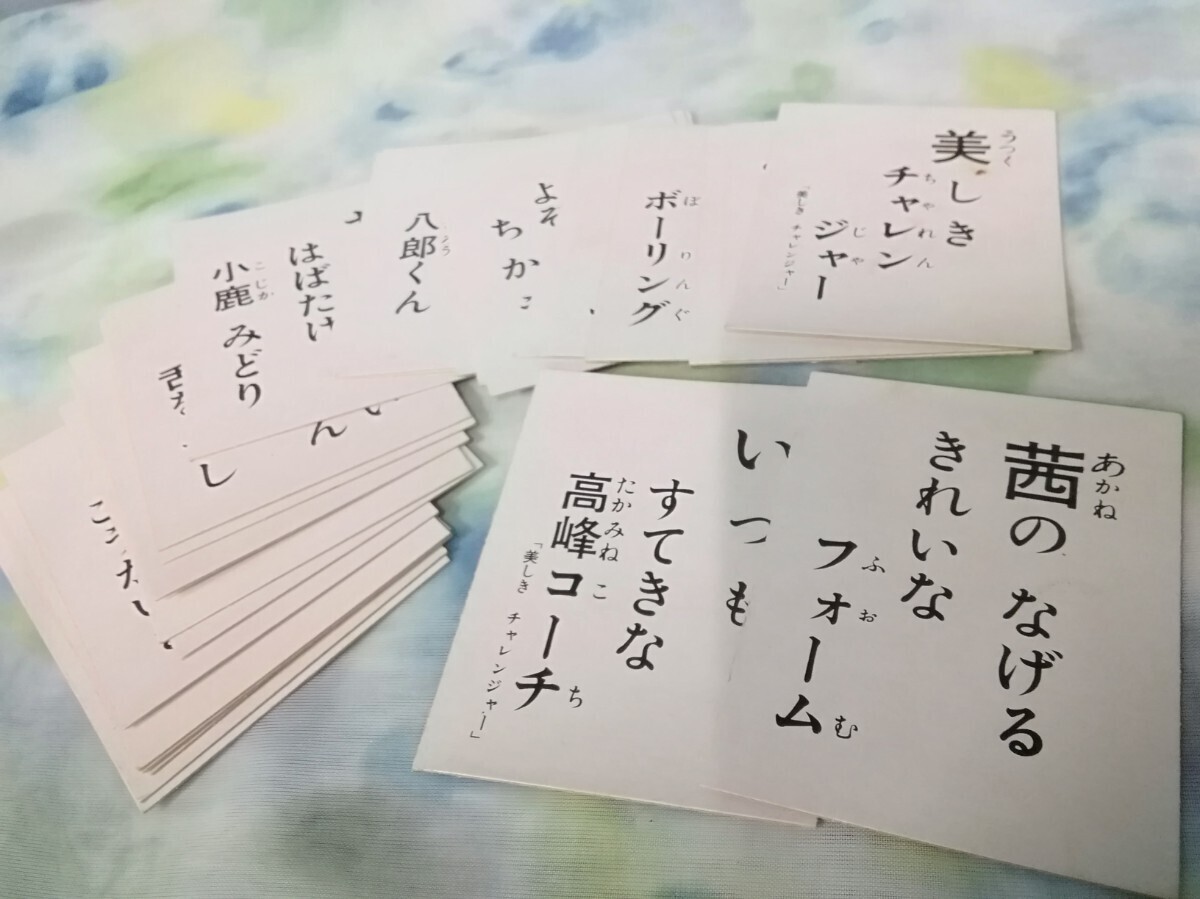 美しき
うつく
チャレン
ちゃれん
ジャー
じゃ
「美しき チャレンジャー」
ボーリング
ぼりんぐ
よそ
ちか
八郎くん
ろう
はばたけ
小鹿 みどり
こじか
ん
し
茜の なげる
あかね
きれいな
フォーム
ふぉおむ
いつも
すてきな
高峰コーチ
たかみねこち
「美しき チャレンジャー」